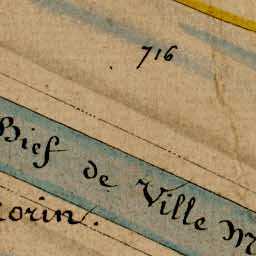 716
Bief de Ville M
orin.